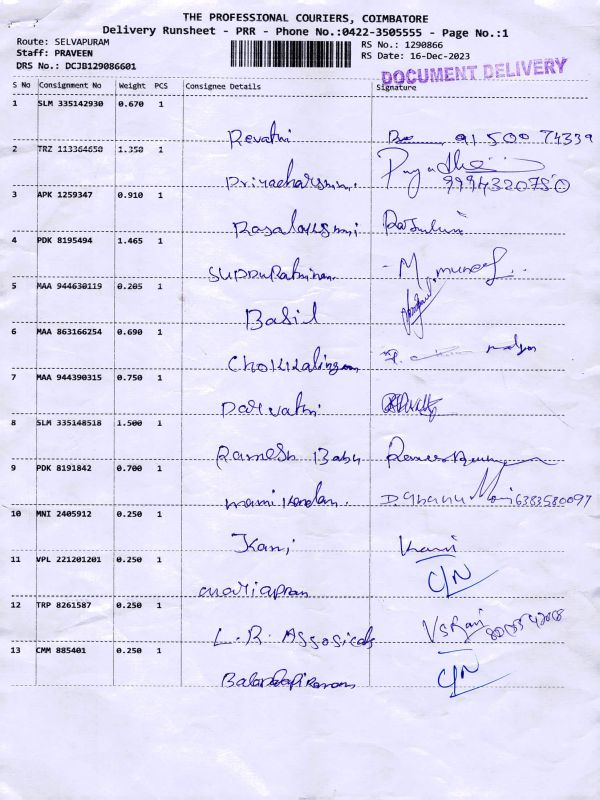 THE PROFESSIONAL COURIERS, COIMBATORE
Delivery Runsheet - PRR - Phone No.:0422-3505555 - Page No.:1
Route: SELVAPURAM
Staff: PRAVEEN
DRS No.: DCJB129086601
RS No.: 1290866
RS Date: 16-Dec-2023
DOCUMENT DELIVERY
S No Consignment No Weight PCS Consignee Details Signature
1 SLM 335142930 0.670 1
Revathi 91 500 74339
2 TRZ 113364650 1.350 1
9994320750
3 APK 1259347 0.910 1
4 PDK 8195494 1.465 1
M.
5 MAA 944630119 0.205 1
Basil
6 MAA 863166254 0.690 1
Chokkalingam
7 MAA 944390315 0.750 1
Parvathi
8 SLM 335148518 1.500 1
Ramesh Babu
9 PDK 8191842 0.700 1
6383580097
10 MNI 2405912 0.250 1
Kani
11 VPL 221201201 0.250 1
mariappan C/N
12 TRP 8261587 0.250 1
L.R.
13 CMM 885401 0.250 1
C/N